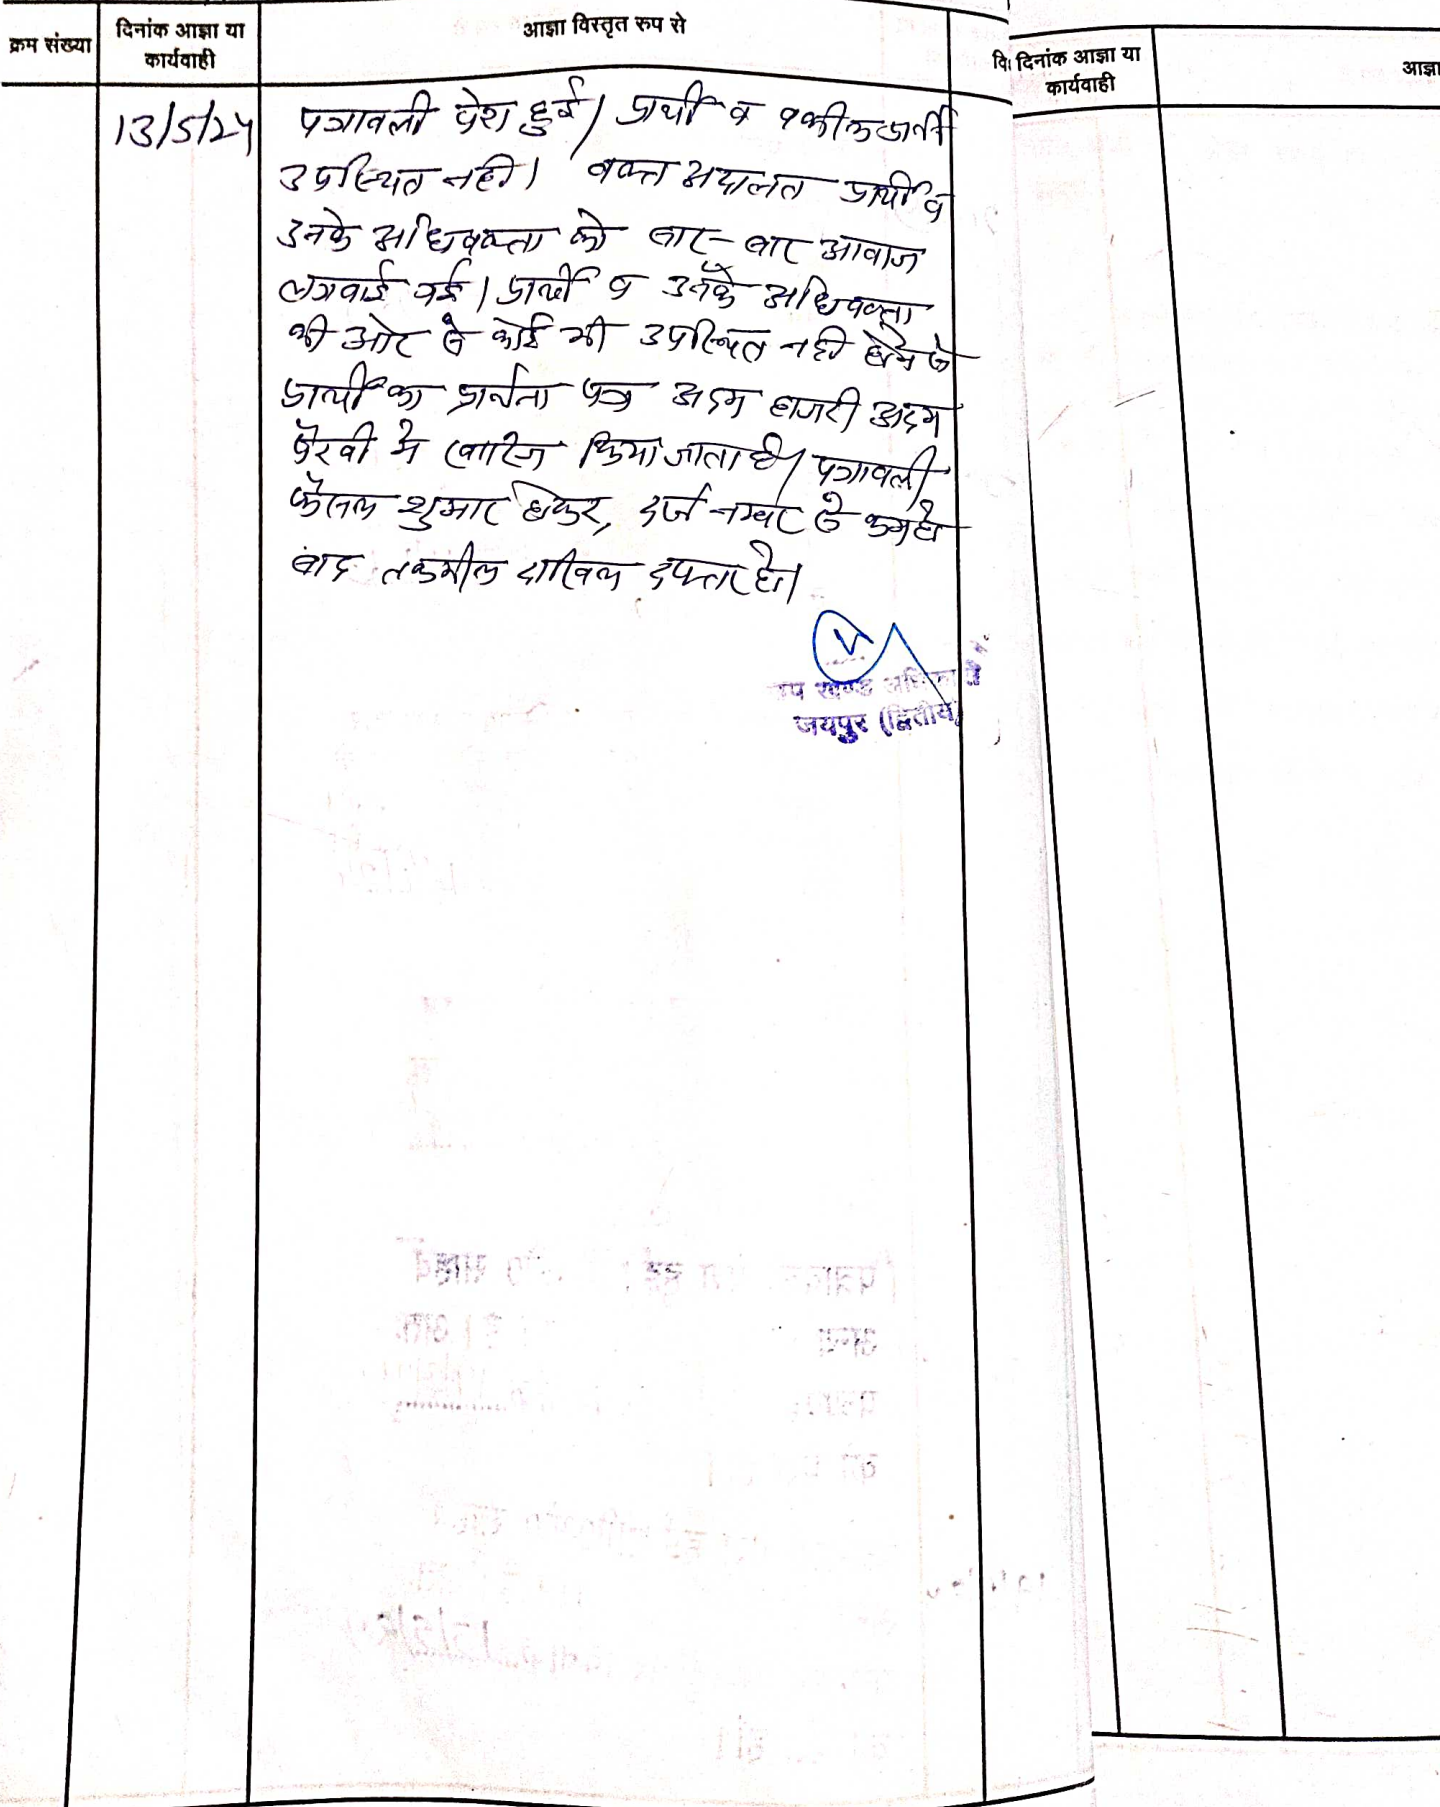 क्रम संख्या
दिनांक आज्ञा या
कार्यवाही
आज्ञा विस्तृत रुप से
13/5/24
पत्रावली पेश हुई। प्रार्थी व वकील प्रार्थी
उपस्थित नहीं। वक्त अदालत प्रार्थी व
उनके अधिवक्ता को बार-बार आवाज
लगवाई गई। प्रार्थी व उनके अधिवक्ता
की ओर से कोई भी उपस्थित नहीं होने से
प्रार्थी का प्रार्थना पत्र अदम हाजरी अदम
पैरवी में खारिज किया जाता है। पत्रावली
फैसल शुमार होकर, दर्ज नम्बर से कम हो
बाद तकमील दाखिल दफ्तर हो।
उप खण्ड अधिकारी
जयपुर (द्वितीय)
दिनांक आज्ञा या
कार्यवाही
आज्ञा